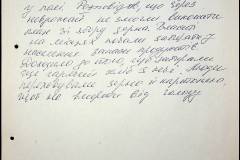 у полі. Розповідав, що через
неврожай не змогли виконати
план зі здачі зерна. Власті
на місцях почали забирати у
населення запаси продуктів.
Доходило до того, що забирали
ще гарячий хліб з печі. Люди
переховували зерно й картоплю,
щоб не вмерти від голоду.